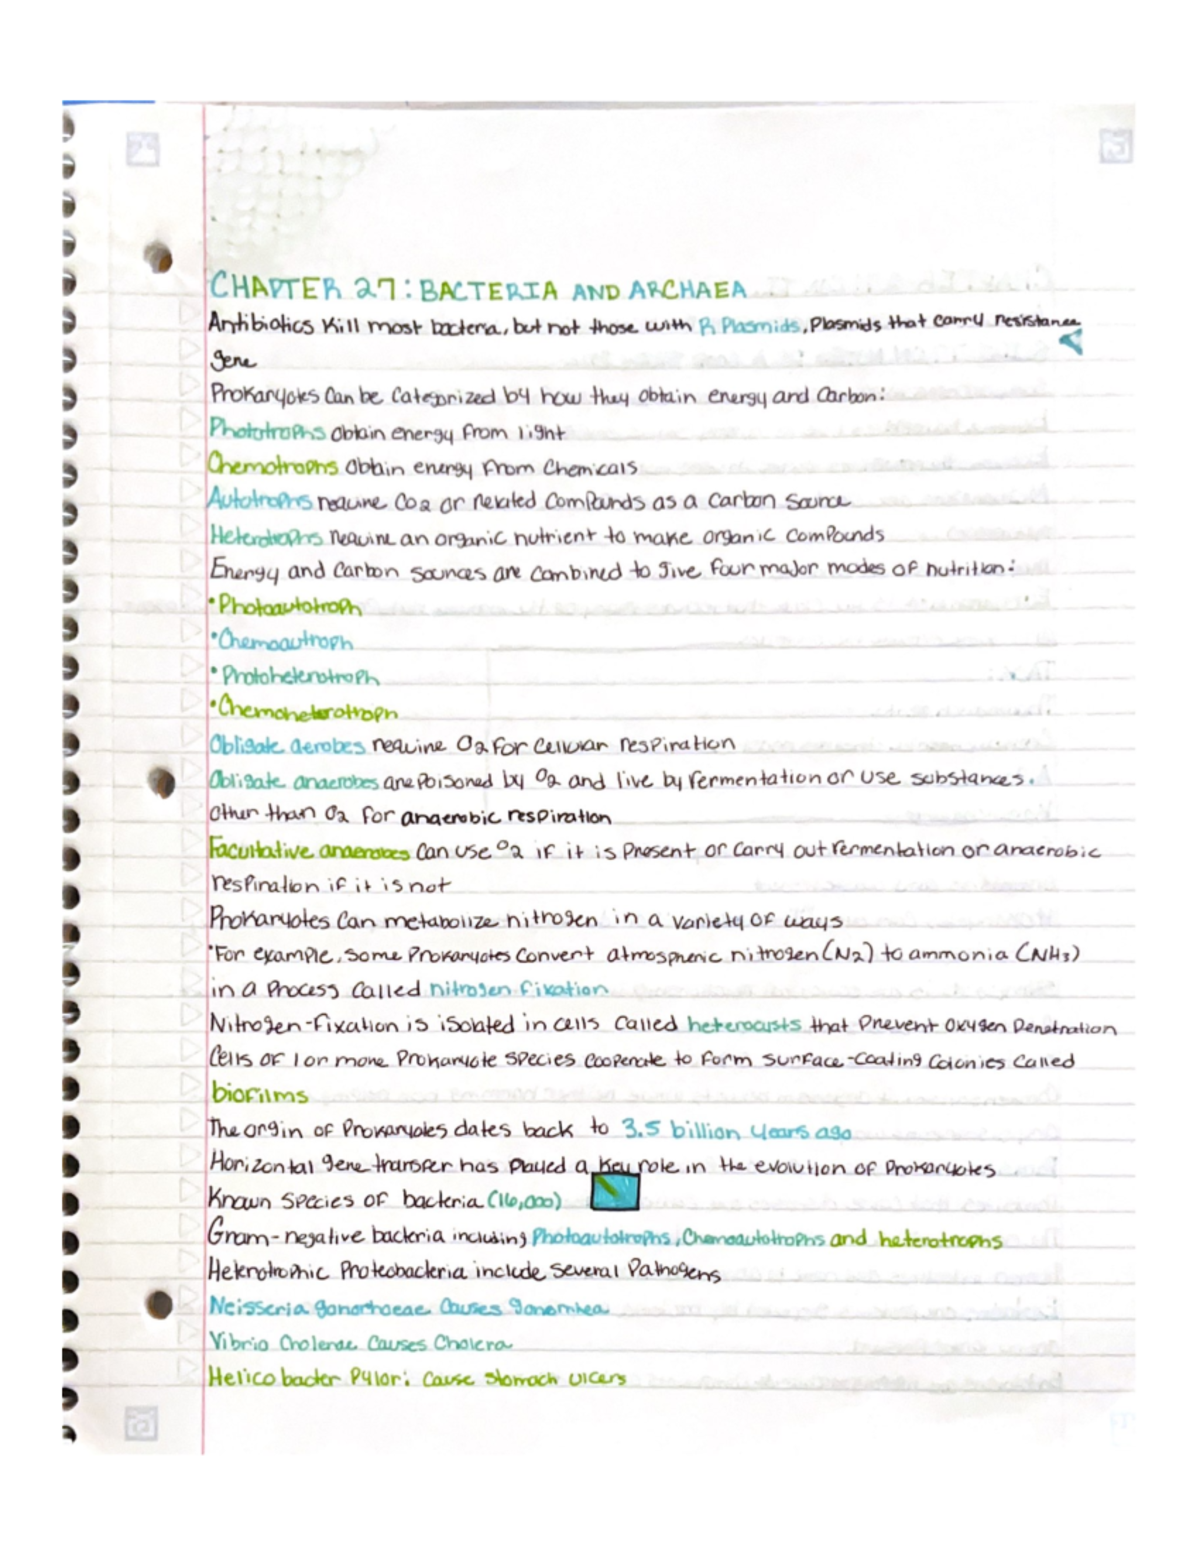 CHAPTER 27: BACTERIA AND ARCHAEA
Antibiotics kill most bacteria, but not those with R Plasmids, Plasmids that carry resistance
gene
Prokaryotes can be categorized by how they obtain energy and carbon:
Phototrophs obtain energy from light
Chemotrophs obtain energy from chemicals
Autotrophs require CO2 or related compounds as a carbon source
Heterotrophs require an organic nutrient to make organic compounds
Energy and carbon sources are combined to give four major modes of nutrition:
•Photoautotroph
•Chemoautroph
•Protoheterotroph
•Chemoheterotroph
Obligate aerobes require O2 for cellular respiration
Obligate anaerobes are poisoned by O2 and live by fermentation or use substances.
other than O2 for anaerobic respiration
Facultative anaerobes can use O2 if it is present or carry out fermentation or anaerobic
respiration if it is not
Prokaryotes can metabolize nitrogen in a variety of ways
•For example, some prokaryotes convert atmospheric nitrogen (N2) to ammonia (NH3)
in a process called nitrogen fixation
Nitrogen-fixation is isolated in cells called heterocysts that prevent oxygen penetration
Cells of 1 or more prokaryote species cooperate to form surface-coating colonies called
biofilms
The origin of prokaryotes dates back to 3.5 billion years ago
Horizontal gene transfer has played a key role in the evolution of prokaryotes
Known species of bacteria (16,000)
Gram-negative bacteria including Photoautotrophs, Chemoautotrophs and heterotrophs
Heterotrophic Proteobacteria include several Pathogens
Neisseria gonorrhoeae causes gonorrhea
Vibrio Cholerae causes Cholera
Helicobacter Pylori cause stomach ulcers